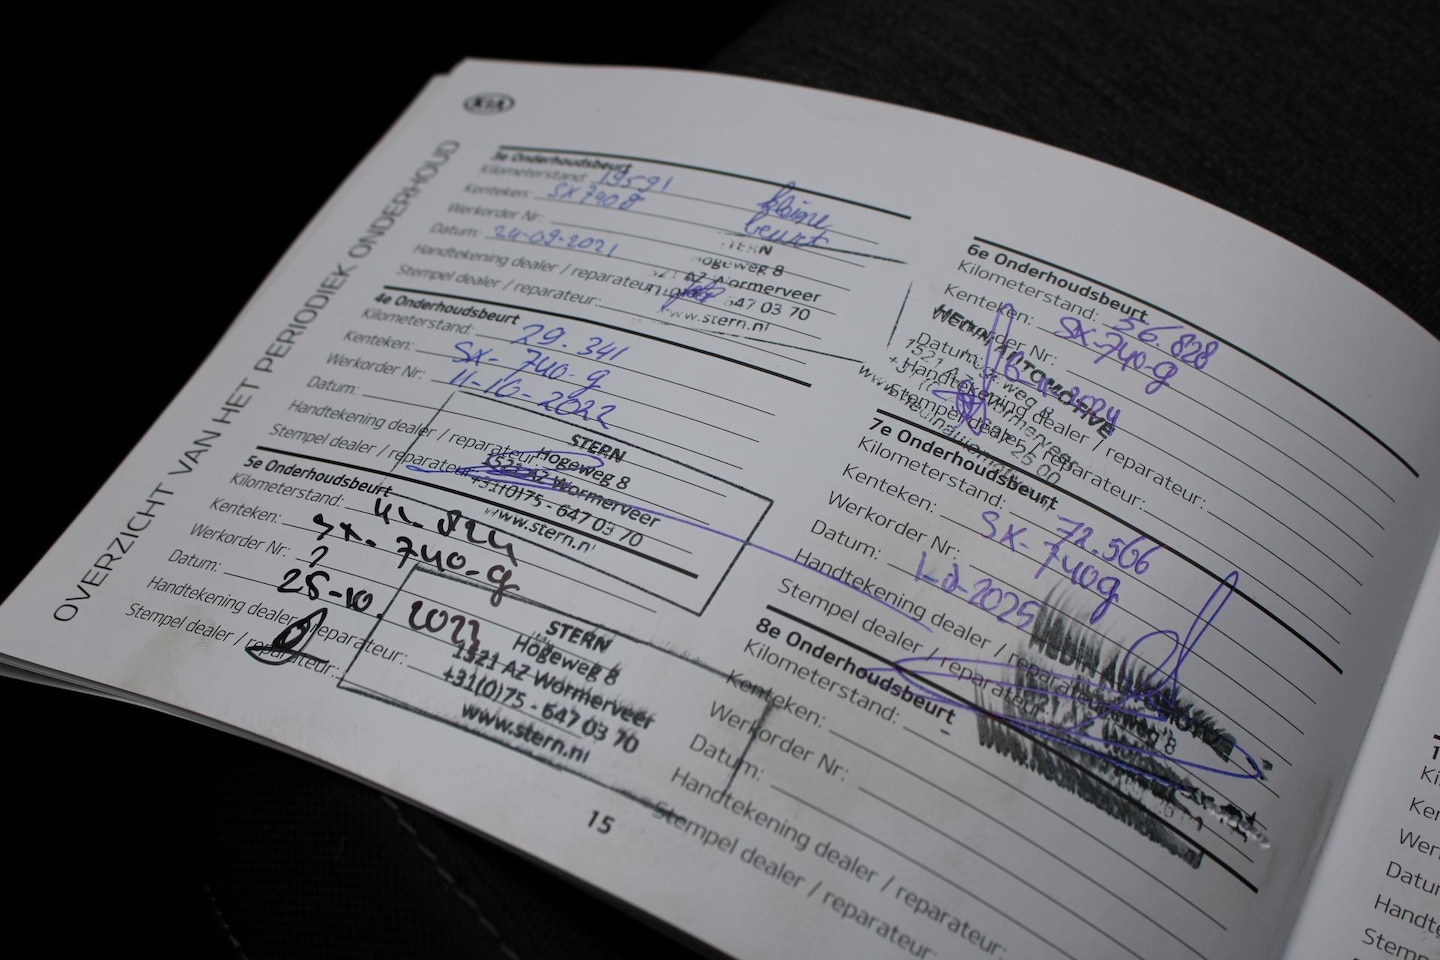 KIA
OVERZICHT VAN HET PERIODIEK ONDERHOUD
3e Onderhoudsbeurt
Kilometerstand: 19591
Kenteken: SX 740 g
Werkorder Nr:
Datum: 24-09-2021
Handtekening dealer / reparateur:
Stempel dealer / reparateur:
kleine
beurt
STERN
Hogeweg 8
1521 AZ Wormerveer
647 03 70
www.stern.nl
4e Onderhoudsbeurt
Kilometerstand: 29.341
Kenteken: SX-740-g
Werkorder Nr:
Datum: 11-10-2022
Handtekening dealer / reparateur:
Stempel dealer / reparateur:
STERN
Hogeweg 8
1521 AZ Wormerveer
+31(0)75 - 647 03 70
www.stern.nl
5e Onderhoudsbeurt
Kilometerstand:
Kenteken: SX-740-g
Werkorder Nr: ?
Datum: 25-10. 2023
Handtekening dealer / reparateur:
Stempel dealer / reparateur:
STERN
Hogeweg 8
1521 AZ Wormerveer
+31(0)75 - 647 03 70
www.stern.nl
15
6e Onderhoudsbeurt
Kilometerstand: 56.828
Kenteken: SX-740-g
Werkorder Nr:
Datum:
Handtekening dealer / reparateur:
Stempel dealer / reparateur:
AUTOMOTIVE
7e Onderhoudsbeurt
Kilometerstand: 72.566
Kenteken: SX-740g
Werkorder Nr:
Datum:
Handtekening dealer / reparateur:
Stempel dealer / reparateur:
8e Onderhoudsbeurt
Kilometerstand:
Kenteken:
Werkorder Nr:
Datum:
Handtekening dealer / reparateur:
Stempel dealer / reparateur: